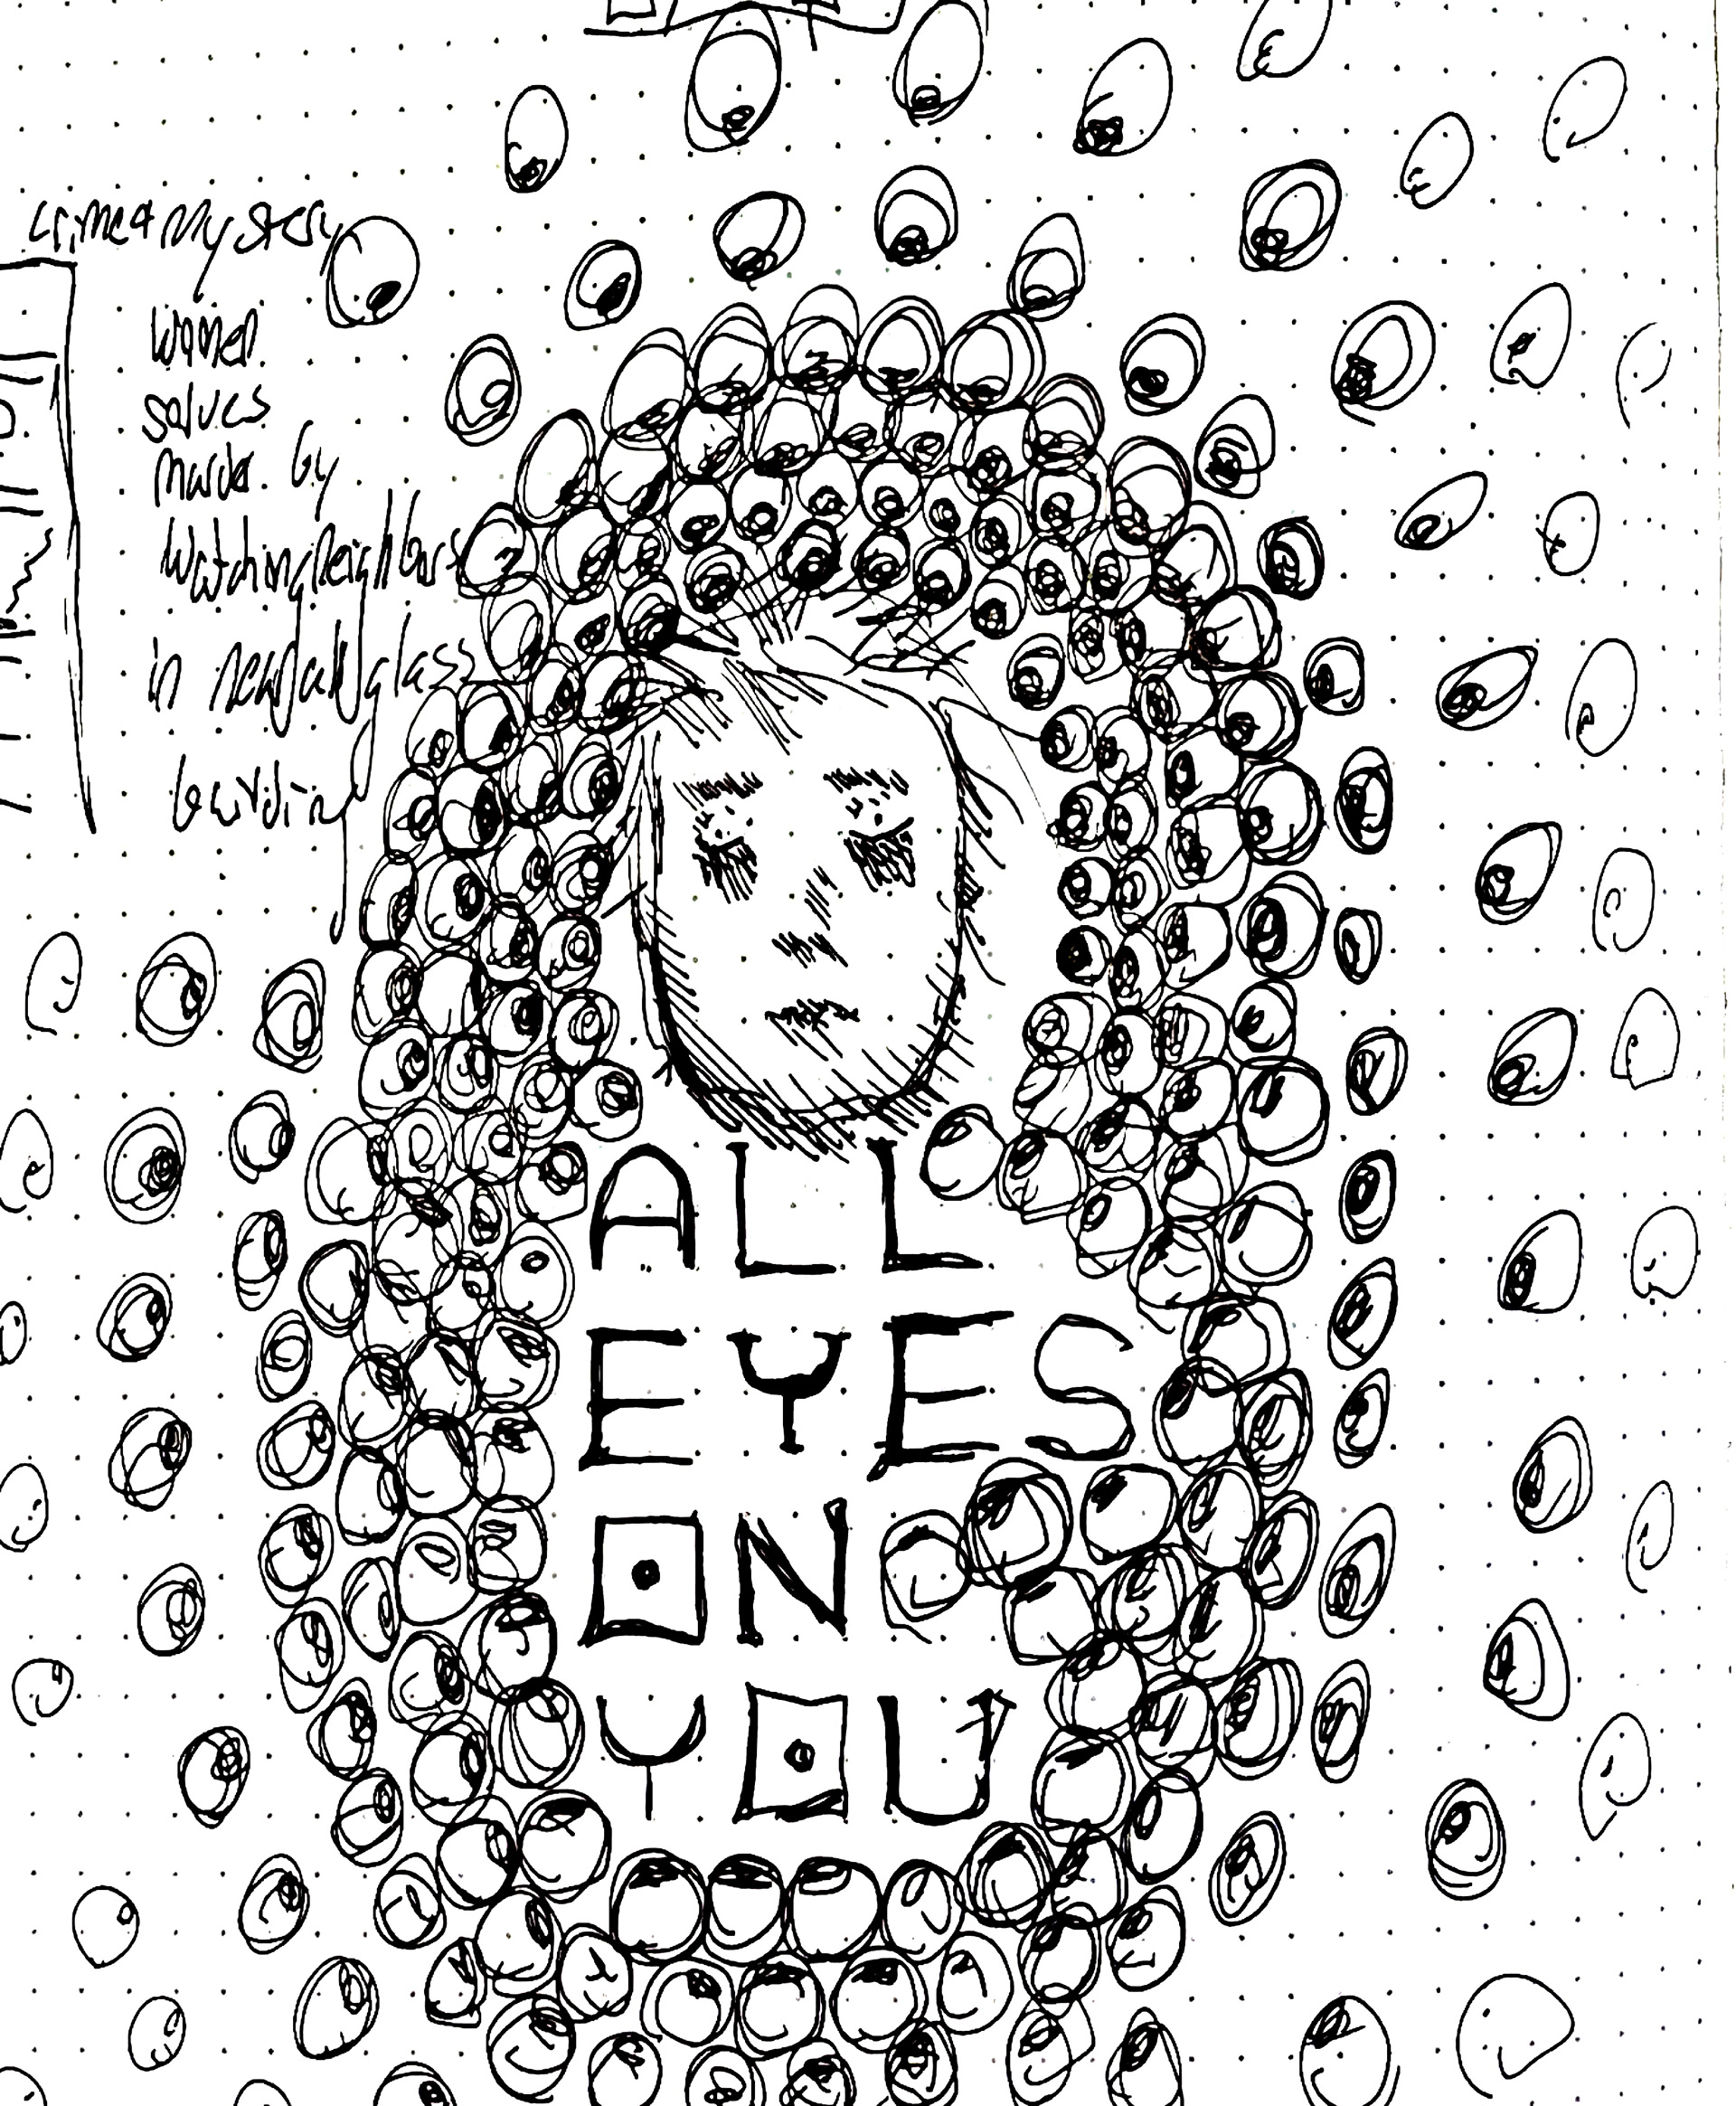 crime & mystery
women
solves
murder by
watching neighbors
in new all glass
building
ALL
EYES
ON
YOU